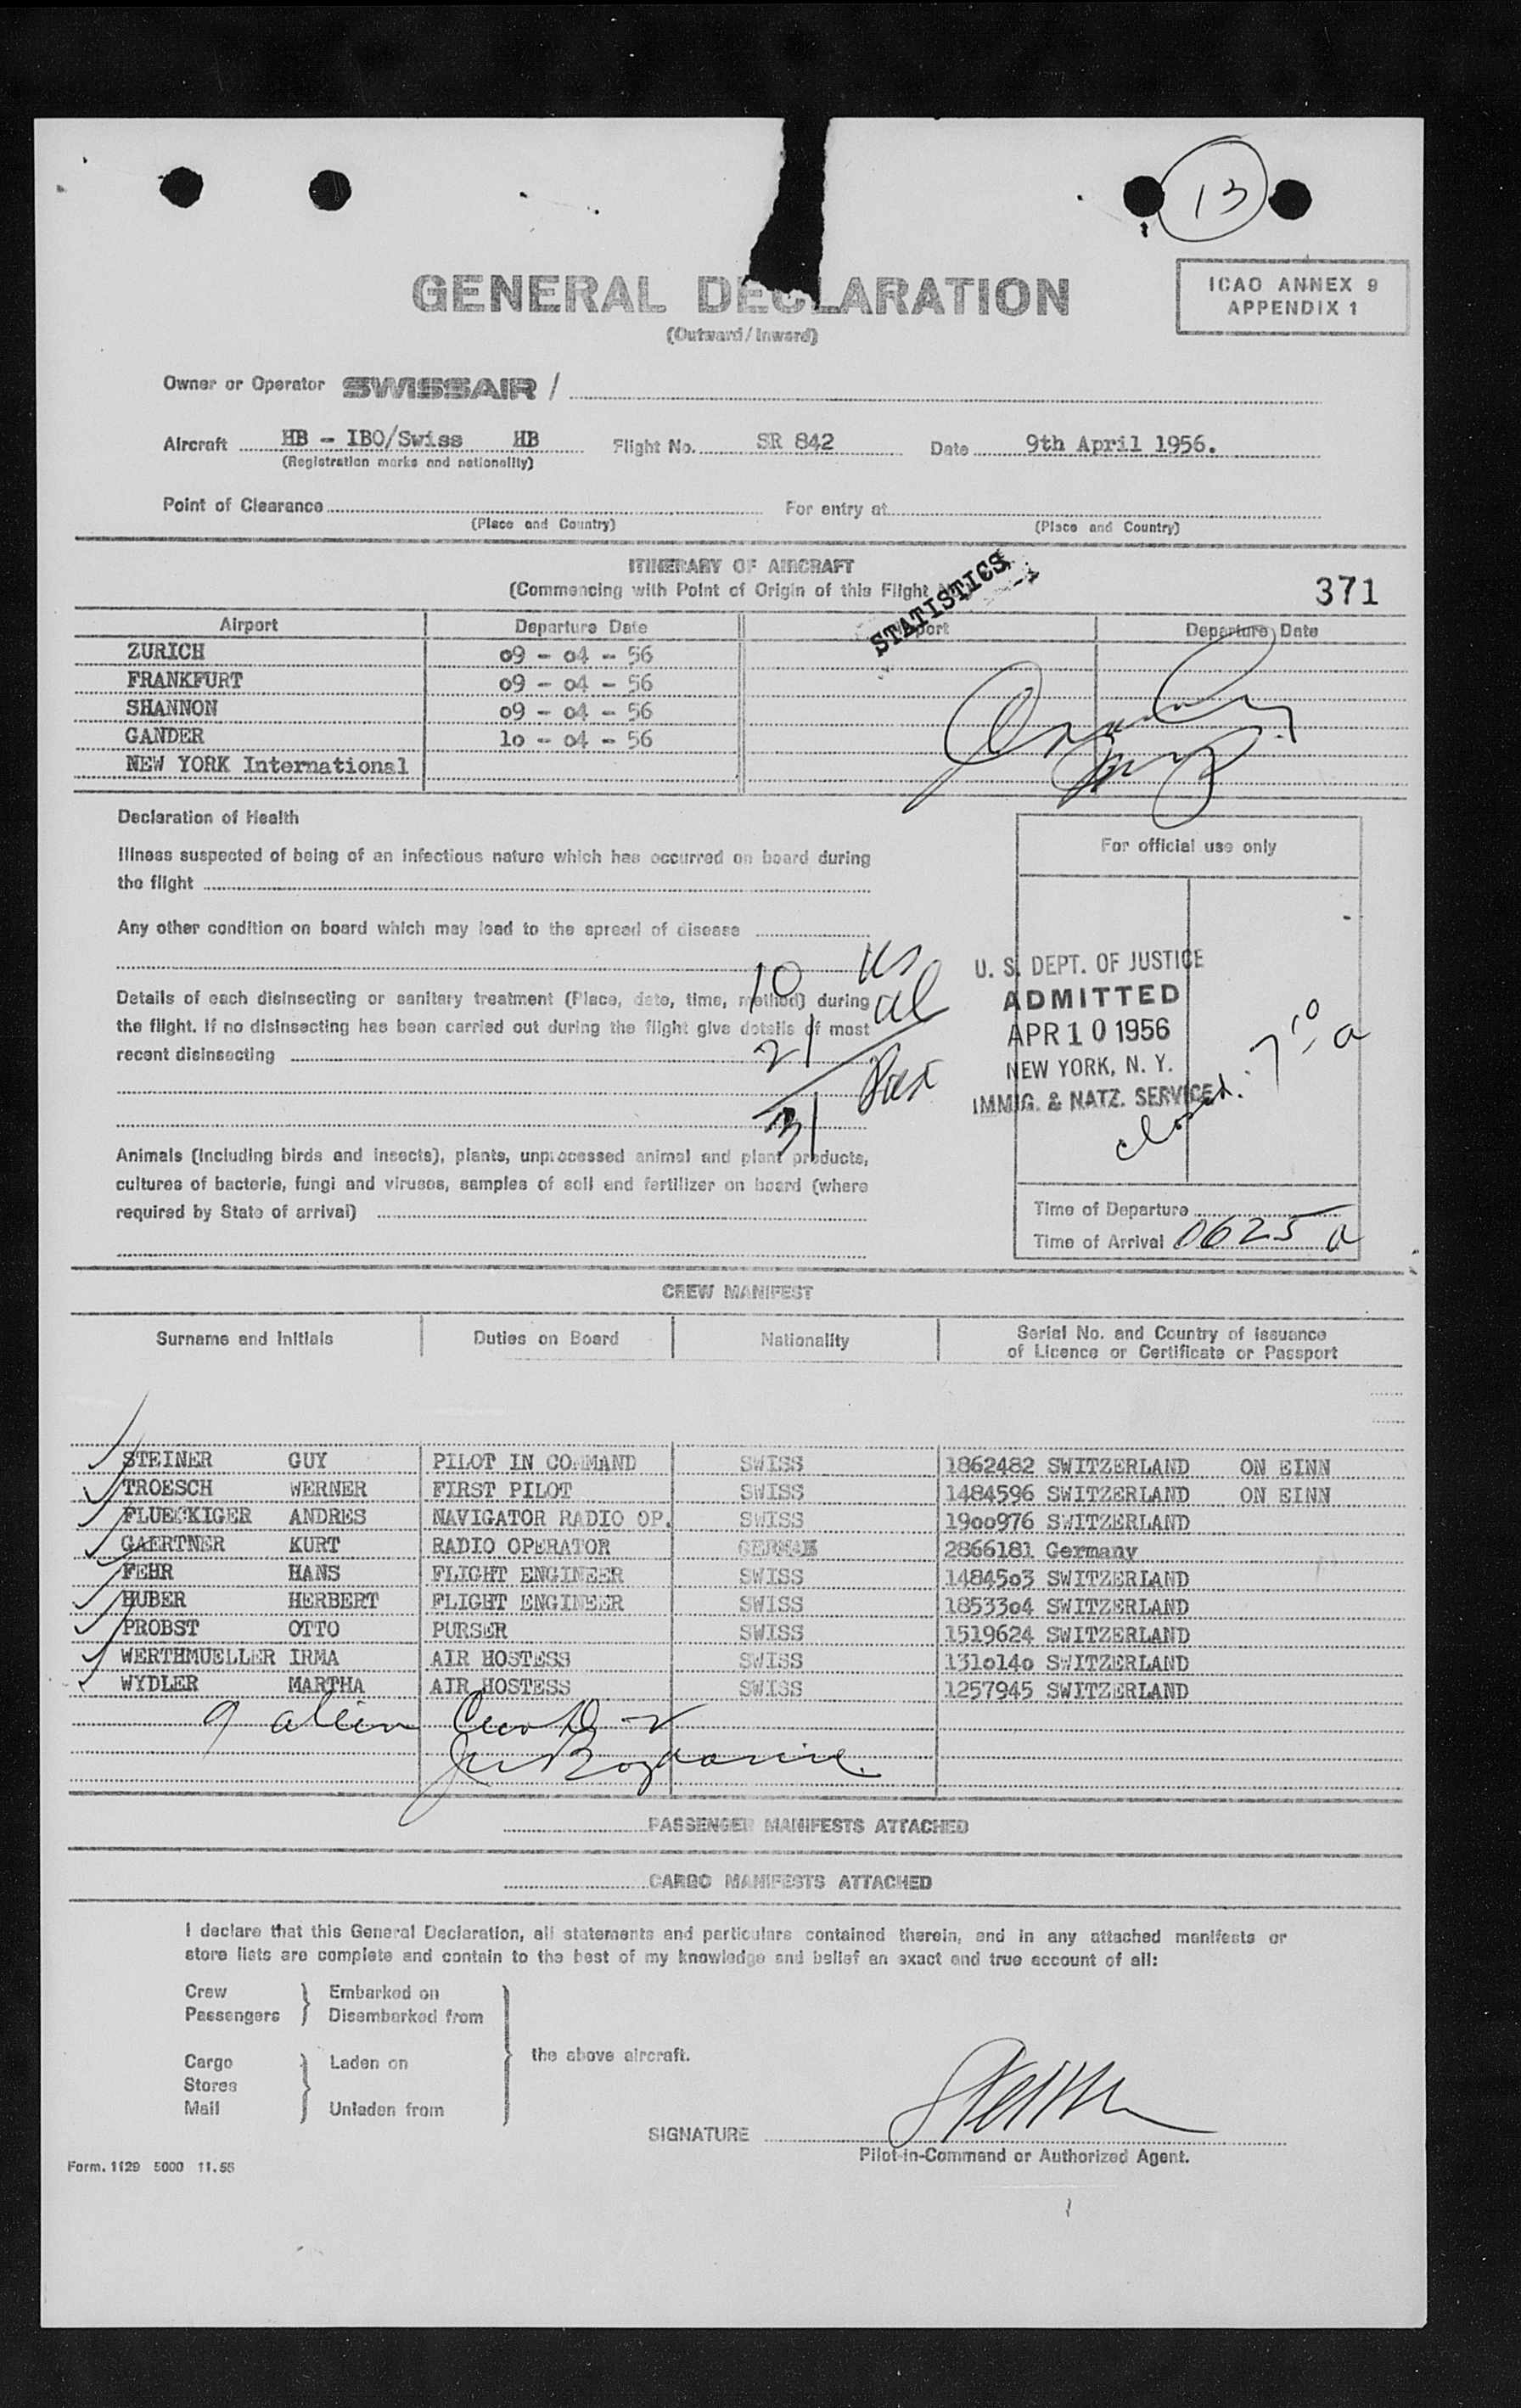 13
GENERAL DECLARATION
(Outward/Inward)
ICAO ANNEX 9
APPENDIX 1
Owner or Operator SWISSAIR /
Aircraft HB - IBO/Swiss HB Flight No. SR 842 Date 9th April 1956.
(Registration marks and nationality)
Point of Clearance For entry at
(Place and Country) (Place and Country)
ITINERARY OF AIRCRAFT
(Commencing with Point of Origin of this Flight
STATISTICS
371
Airport Departure Date Departure Date
ZURICH 09 - 04 - 56
FRANKFURT 09 - 04 - 56
SHANNON 09 - 04 - 56
GANDER 10 - 04 - 56
NEW YORK International
Declaration of Health
Illness suspected of being of an infectious nature which has occurred on board during
the flight
Any other condition on board which may lead to the spread of disease
Details of each disinsecting or sanitary treatment (Place, date, time, method) during
the flight. If no disinsecting has been carried out during the flight give details of most
recent disinsecting
10 us
21 al
31 Pax
Animals (including birds and insects), plants, unprocessed animal and plant products,
cultures of bacteria, fungi and viruses, samples of soil and fertilizer on board (where
required by State of arrival)
For official use only
U. S. DEPT. OF JUSTICE
ADMITTED
APR 10 1956
NEW YORK, N. Y.
IMMIG. & NATZ. SERVICE
closed: 7 10 a
Time of Departure
Time of Arrival 0625 a
CREW MANIFEST
Surname and Initials Duties on Board Nationality Serial No. and Country of issuance
of Licence or Certificate or Passport
STEINER GUY PILOT IN COMMAND SWISS 1862482 SWITZERLAND ON EINN
TROESCH WERNER FIRST PILOT SWISS 1484596 SWITZERLAND ON EINN
FLUECKIGER ANDRES NAVIGATOR RADIO OP. SWISS 1900976 SWITZERLAND
GAERTNER KURT RADIO OPERATOR GERMAN 2866181 Germany
FEHR HANS FLIGHT ENGINEER SWISS 1484503 SWITZERLAND
HUBER HERBERT FLIGHT ENGINEER SWISS 1853304 SWITZERLAND
PROBST OTTO PURSER SWISS 1519624 SWITZERLAND
WERTHMUELLER IRMA AIR HOSTESS SWISS 1310140 SWITZERLAND
WYDLER MARTHA AIR HOSTESS SWISS 1257945 SWITZERLAND
9 alien
PASSENGER MANIFESTS ATTACHED
CARGO MANIFESTS ATTACHED
I declare that this General Declaration, all statements and particulars contained therein, and in any attached manifests or
store lists are complete and contain to the best of my knowledge and belief an exact and true account of all:
Crew Embarked on
Passengers Disembarked from
the above aircraft.
Cargo Laden on
Stores
Mail Unladen from
SIGNATURE
Pilot-in-Command or Authorized Agent.
Form. 1129 5000 11.55